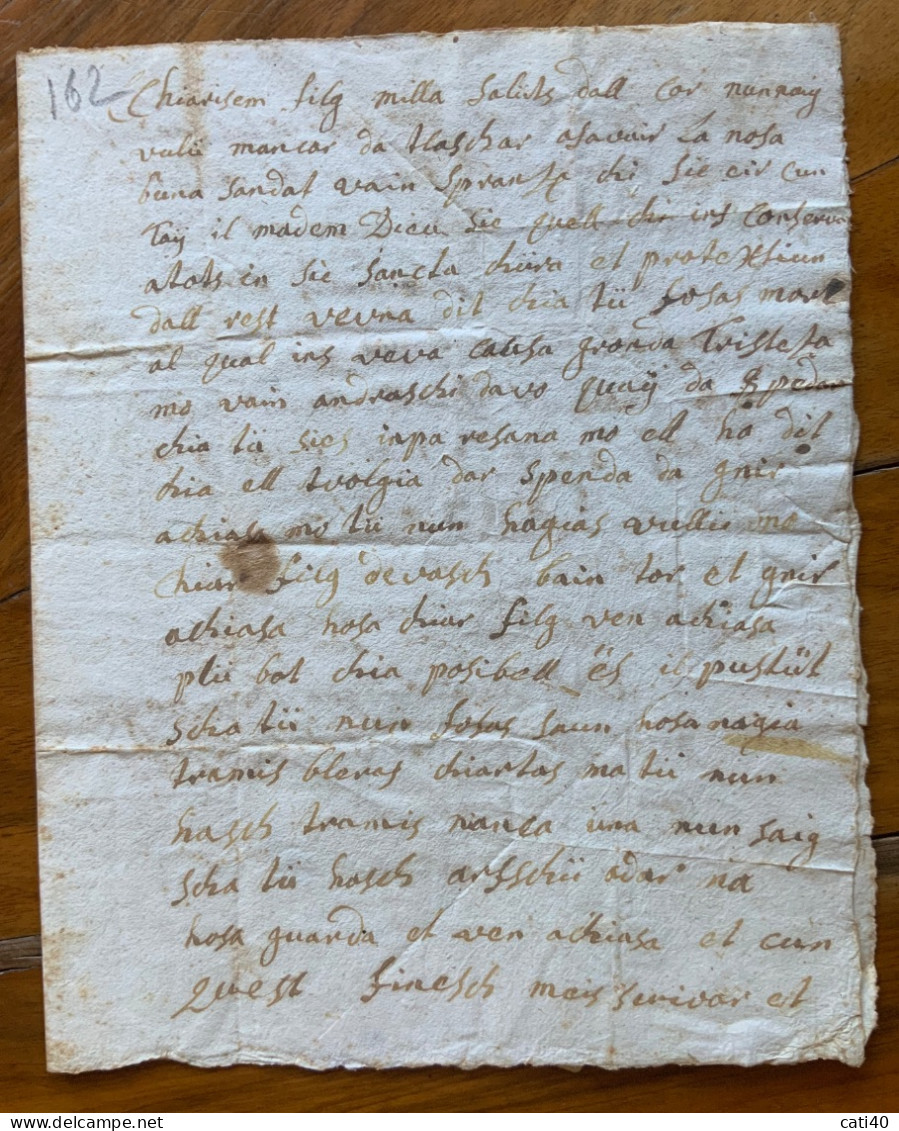 162
Chiarisem filg milla Saluts dall cor nun naig
vulü mancar da tlaschar asavair la nosa
buna sandat vain Spransa chi Sie eir cun
Taÿ il madem Dieu Sie quell chi ins Conserva
atots in Sie Sancta chüra et protextiun
dall rest veivna dit chia tü fosas mort
al qual ins veva causa gronda Tristeza
mo vain andraschi davo quaÿ da
chia tü sies inpa resana mo ell ha dit
chia ell tvolgia dar Spenda da gnir
achiasa mo tü nun hagias vullü mo
chiar filg devasch bain tor et gnir
achiasa hosa chiar filg ven achiasa
plü bot chia posibell ës il pustüt
scha tü nun fosas saun hosa nagia
tramis bleras chiartas ma tü nun
hasch tramis nanca üna nun saig
scha tü hasch arsschü odar na
hosa guarda et ven achiasa et cun
Quest finesch meis scrivar et
cati40